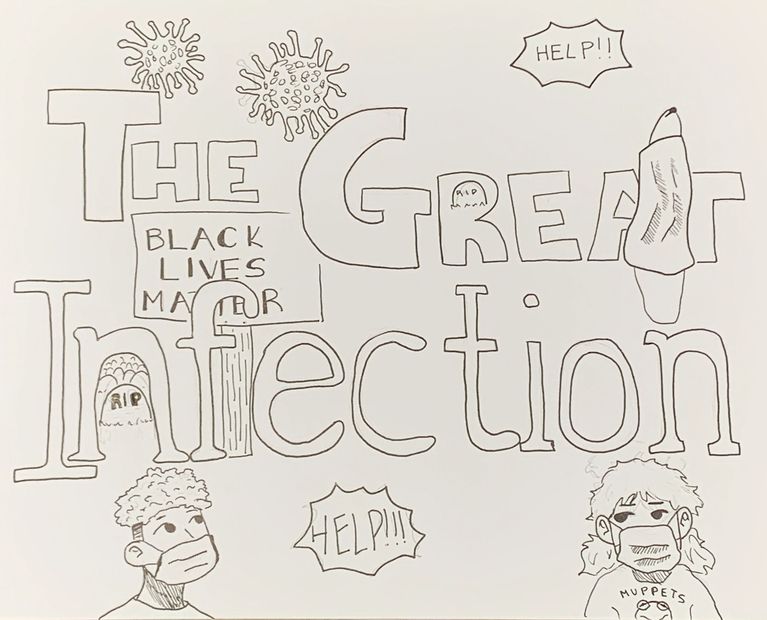 HELP!!
THE GREAT
RIP
BLACK
LIVES
MATTER
Infection
RIP
HELP!!!
MUPPETS